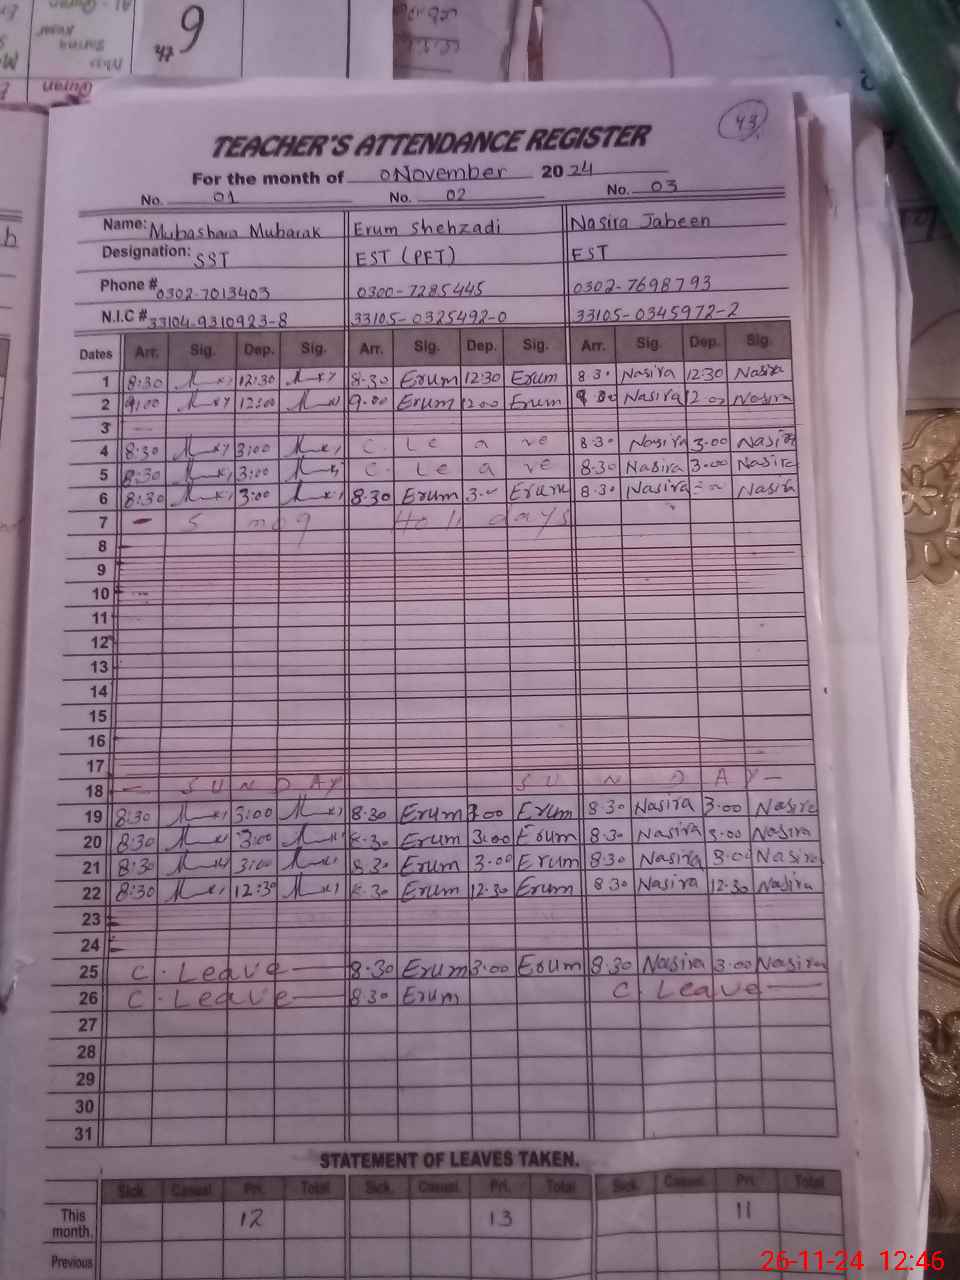 9
47
43
TEACHER'S ATTENDANCE REGISTER
For the month of November 2024
No. 01 No. 02 No. 03
Name: Mubashara Mubarak Erum Shehzadi Nasira Jabeen
Designation: SST EST (PET) EST
Phone # 0302-7013403 0300-7285445 0302-7698793
N.I.C # 33104-9310923-8 33105-0325492-0 33105-0345972-2
Dates Arr. Sig. Dep. Sig. Arr. Sig. Dep. Sig. Arr. Sig. Dep. Sig.
1 8:30 12:30 8:30 Erum 12:30 Erum 8:30 Nasira 12:30 Nasira
2 9:00 12:00 9:00 Erum 12:00 Erum 9:00 Nasira 12:00 Nasira
3
4 8:30 3:00 C. Leave 8:30 Nasira 3:00 Nasira
5 8:30 3:00 C. Leave 8:30 Nasira 3:00 Nasira
6 8:30 3:00 8:30 Erum 3:00 Erum 8:30 Nasira Nasira
7 Smog Holidays
8
9
10
11
12
13
14
15
16
17
18 SUNDAY SUNDAY
19 8:30 3:00 8:30 Erum 3:00 Erum 8:30 Nasira 3:00 Nasira
20 8:30 3:00 8:30 Erum 3:00 Erum 8:30 Nasira 3:00 Nasira
21 8:30 3:00 8:30 Erum 3:00 Erum 8:30 Nasira 3:00 Nasira
22 8:30 12:30 8:30 Erum 12:30 Erum 8:30 Nasira 12:30 Nasira
23
24
25 C. Leave 8:30 Erum 3:00 Erum 8:30 Nasira 3:00 Nasira
26 C. Leave 8:30 Erum C. Leave
27
28
29
30
31
STATEMENT OF LEAVES TAKEN.
Sick. Casual. Pri. Total Sick. Casual. Pri. Total Sick. Casual. Pri. Total
This month. 12 13 11
Previous
26-11-24 12:46